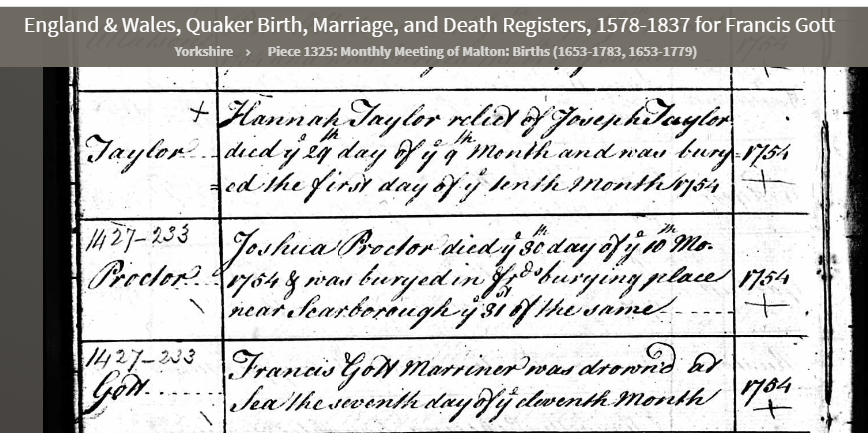 England & Wales, Quaker Birth, Marriage, and Death Registers, 1578-1837 for Francis Gott
Yorkshire › Piece 1325: Monthly Meeting of Malton: Births (1653-1783, 1653-1779)
+ Hannah Taylor relict of Joseph Taylor
Taylor died yᵉ 29ᵗʰ day of yᵉ 9ᵗʰ Month and was bury= 1754
=ed the first day of yᵉ tenth Month 1754 +
1427-233
Joshua Proctor died yᵉ 30 day of yᵉ 10ᵗʰ Mo.
Proctor 1754 & was buryed in frᵈˢ burying place 1754
near Scarborough yᵉ 31ˢᵗ of the same +
1427-233
Francis Gott Marriner was drown'd at
Gott Sea the seventh day of yᵉ eleventh Month 1754
+